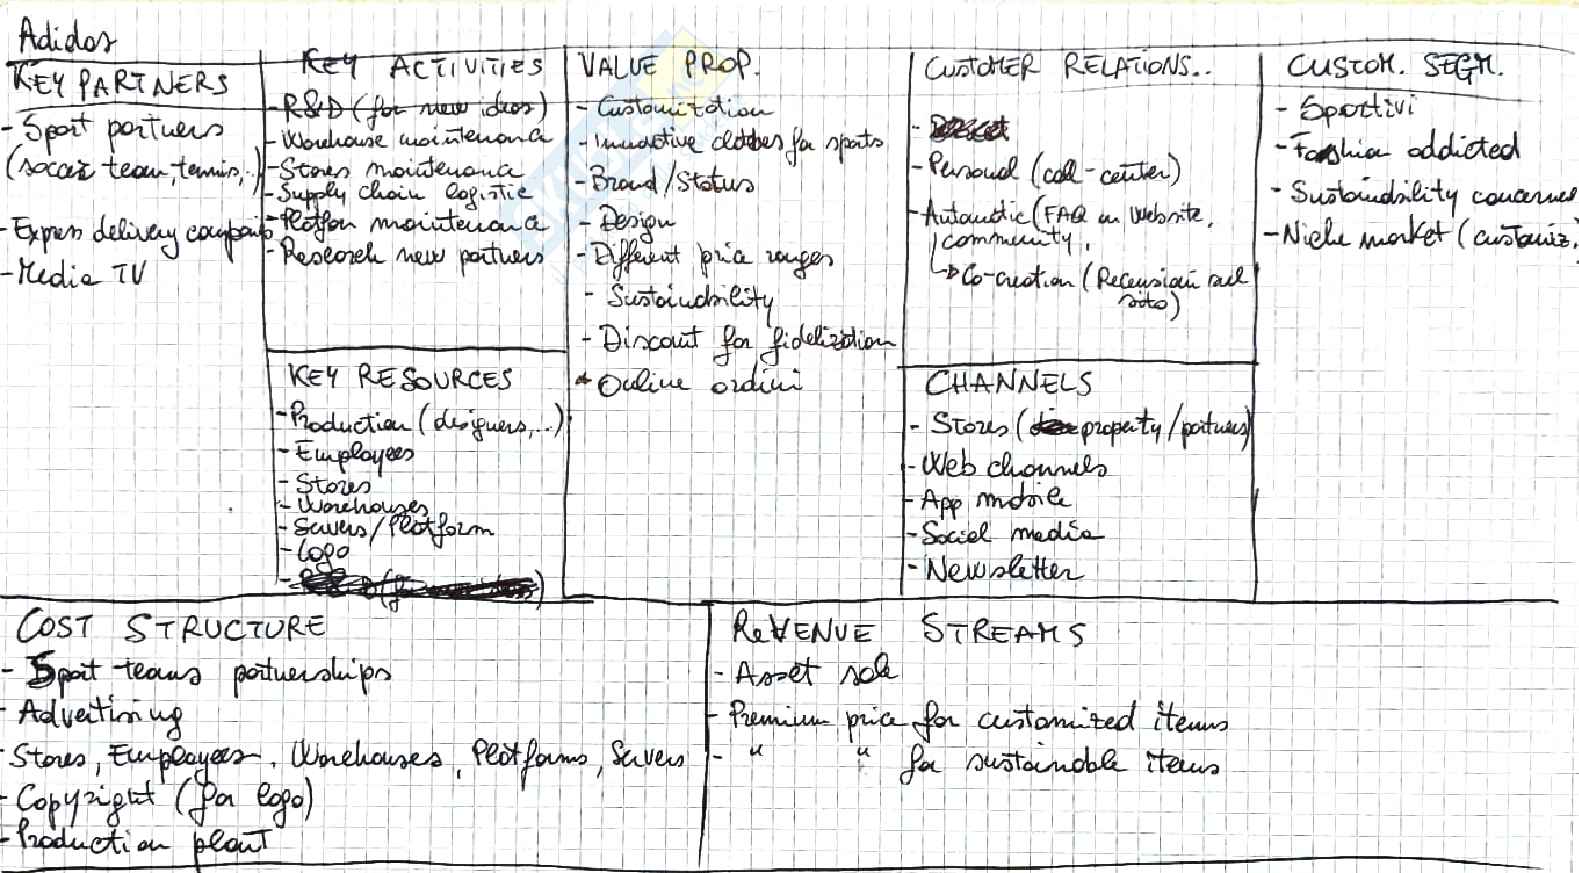 Adidas
KEY PARTNERS
- Sport partners
(soccer team, tennis,..)
- Express delivery companies
- Media TV
KEY ACTIVITIES
- R&D (for new ideas)
- Warehouse maintenance
- Stores maintenance
- Supply chain logistic
- Platform maintenance
- Research new partners
KEY RESOURCES
- Production (designers,..)
- Employees
- Stores
- Warehouses
- Servers/Platform
- Logo
VALUE PROP.
- Customization
- Innovative clothes for sports
- Brand/Status
- Design
- Different price ranges
- Sustainability
- Discount for fidelization
- Online ordini
CUSTOMER RELATIONS..
- Personal (call-center)
- Automatic (FAQ on website,
community,
Co-creation (Recensioni sul
sito)
CHANNELS
- Stores (property/partners)
- Web channels
- App mobile
- Social media
- Newsletter
CUSTOM. SEGM.
- Sportivi
- Fashion addicted
- Sustainability concerned
- Niche market (customiz.)
COST STRUCTURE
- Sport teams partnerships
- Advertising
- Stores, Employees, Warehouses, Platforms, Servers
- Copyright (for logo)
- Production plant
REVENUE STREAMS
- Asset sale
- Premium price for customized items
- " " for sustainable items